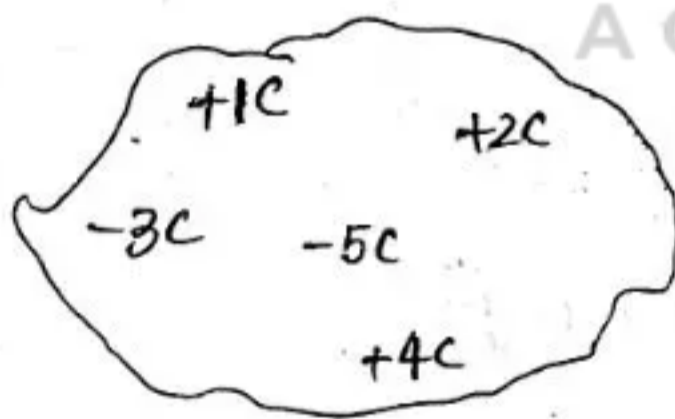 A
+1C
+2C
-3C -5C
+4C